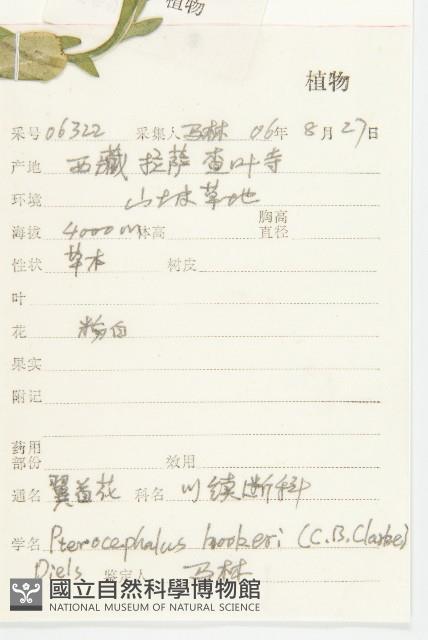 植物
植物
采号 06322 采集人 马林 06年 8月27日
产地 西藏 拉萨 查叶寺
环境 山坡草地
胸高
海拔 4000m 体高 直径
性状 草本 树皮
叶
花 粉白
果实
附记
药用
部份 效用
通名 翼首花 科名 川续断科
学名 Pterocephalus hookeri (C.B.Clarke)
Diels 鉴定人 马林
國立自然科學博物館
NATIONAL MUSEUM OF NATURAL SCIENCE